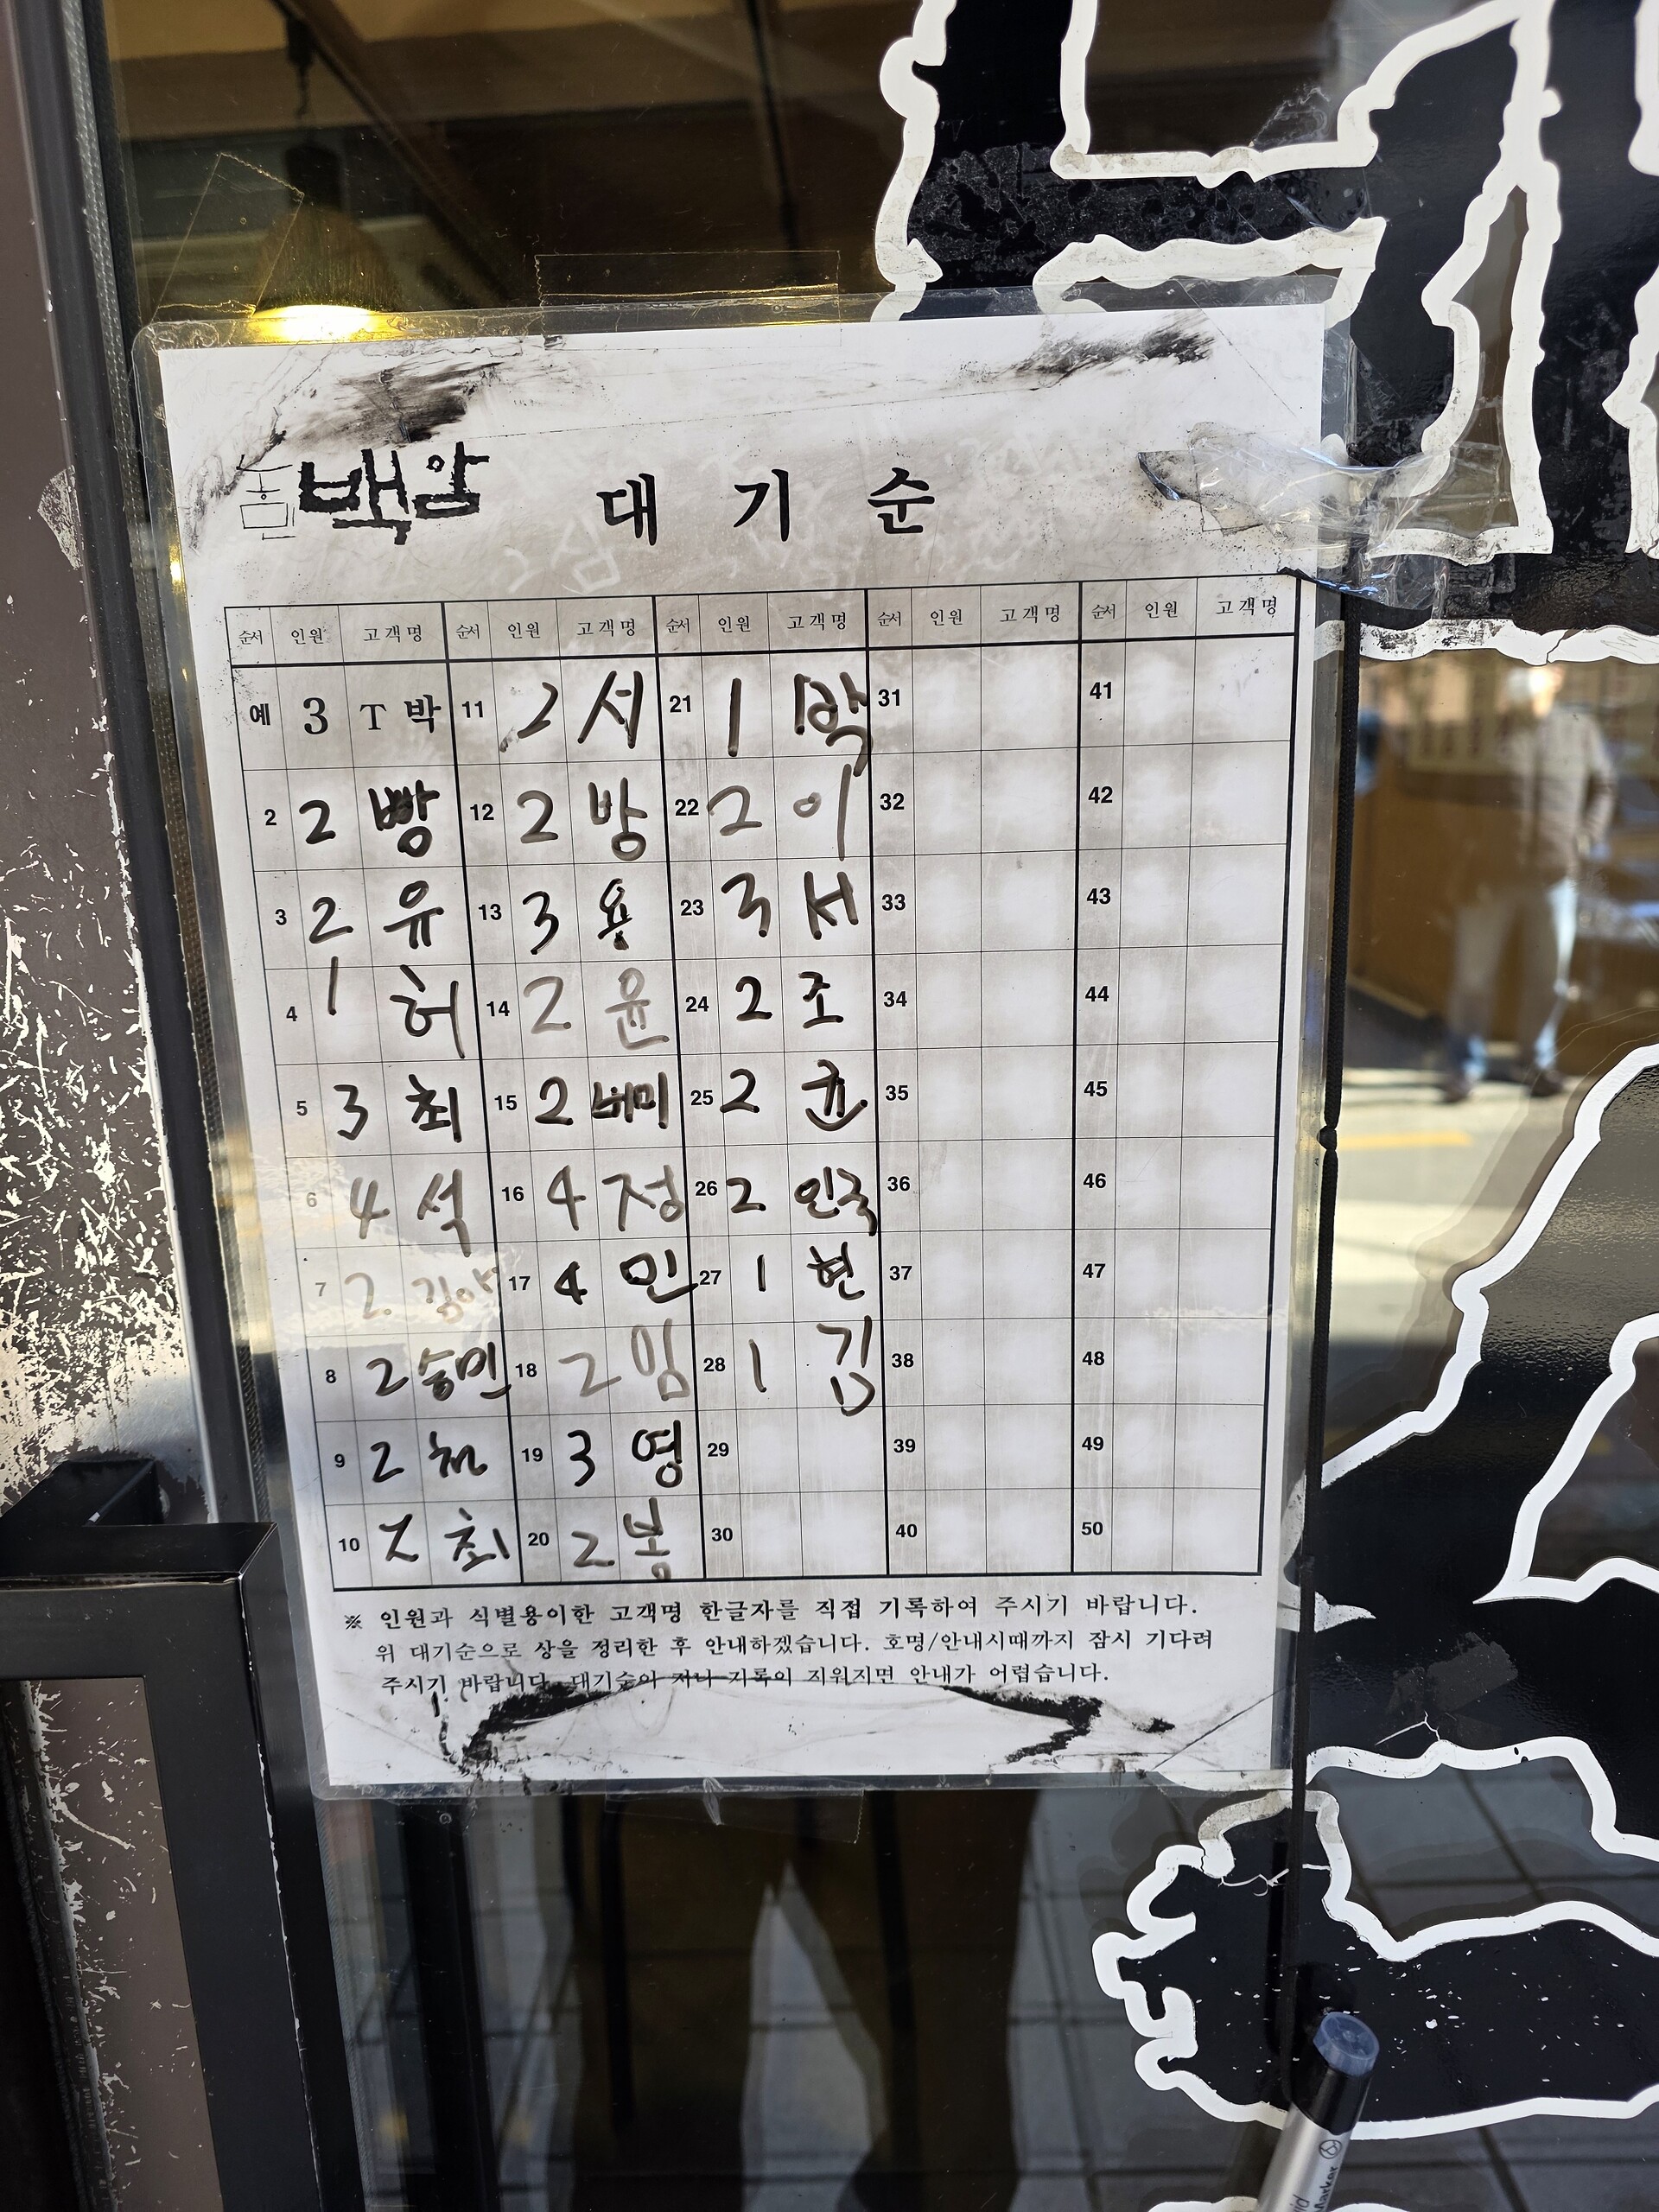 농민백암 대기순
순서 인원 고객명 순서 인원 고객명 순서 인원 고객명 순서 인원 고객명 순서 인원 고객명
예 3 T 박 11 2 서 21 1 박 31 41
2 2 빵 12 2 방 22 2 이 32 42
3 2 유 13 3 용 23 3 서 33 43
4 1 허 14 2 윤 24 2 조 34 44
5 3 최 15 2 버미 25 2 균 35 45
6 4 석 16 4 정 26 2 인국 36 46
7 2. 17 4 민 27 1 현 37 47
8 2 승민 18 2 임 28 1 김 38 48
9 2 천 19 3 영 29 39 49
10 2 최 20 2 봄 30 40 50
※ 인원과 식별용이한 고객명 한글자를 직접 기록하여 주시기 바랍니다.
위 대기순으로 상을 정리한 후 안내하겠습니다. 호명/안내시때까지 잠시 기다려
주시기 바랍니다. 대기순이 지나 기록이 지워지면 안내가 어렵습니다.
Marker